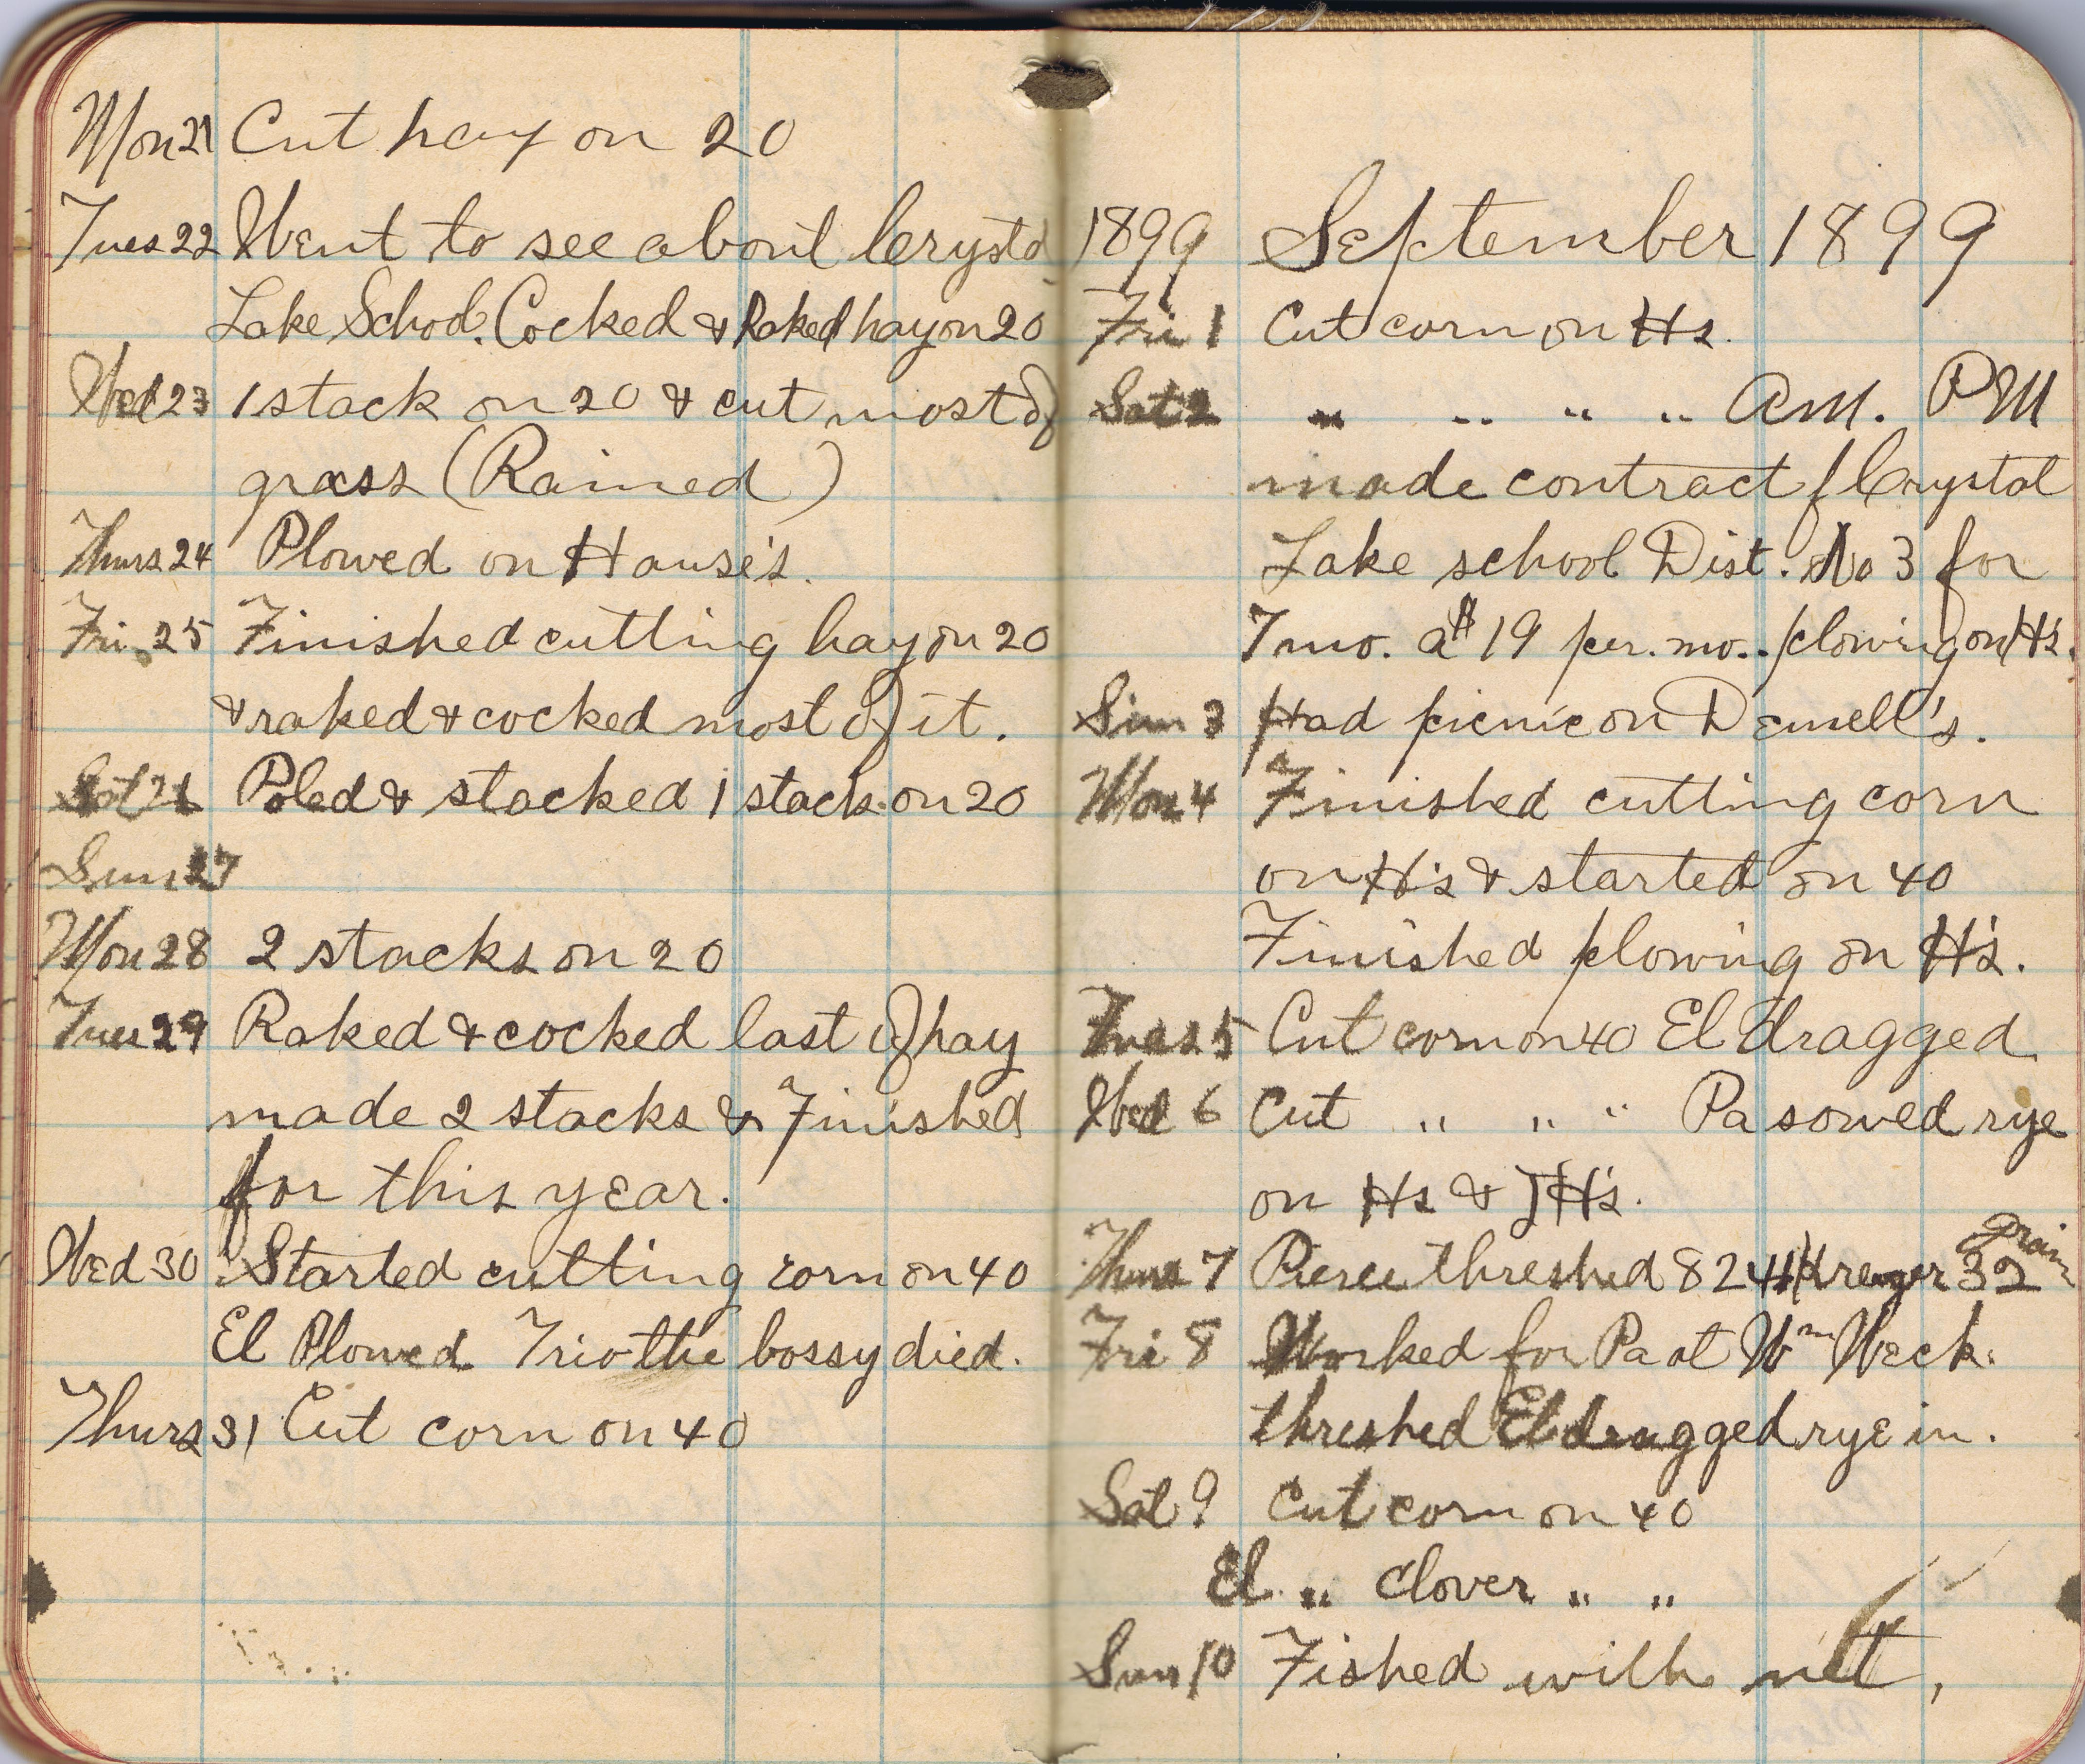 Mon 21 Cut hay on 20
Tues 22 Went to see about Crystal
Lake School. Cocked & Raked hay on 20
Wed 23 1 stack on 20 & cut most of
grass (Rained)
Thurs 24 Plowed on Hause's.
Fri. 25 Finished cutting hay on 20
& raked & cocked most of it.
Sat 26 Poled & stacked 1 stack on 20
Sun 27
Mon 28 2 stacks on 20
Tues 29 Raked & cocked last of hay
made 2 stacks & Finished
for this year.
Wed 30 Started cutting corn on 40
El Plowed Trio the bossy died.
Thurs 31 Cut corn on 40
1899 September 1899
Fri 1 Cut corn on Hs.
Sat 2 " " " " AM. PM
made contract f Crystal
Lake school Dist. No 3 for
7 mo. a $19 per. mo. plowing on H's.
Sun 3 Had picnic on Demell's.
Mon 4 Finished cutting corn
on H's & started on 40
Finished plowing on H's.
Tues 5 Cut corn on 40 El dragged
Wed 6 Cut " " " Pa sowed rye
on Hs & JH's.
grain
Thurs 7 Pierce threshed 824 32
Fri 8 Worked for Pa at Wm Weck.
threshed El dragged rye in.
Sat 9 Cut corn on 40
El " clover " "
Sun 10 Fished with net,